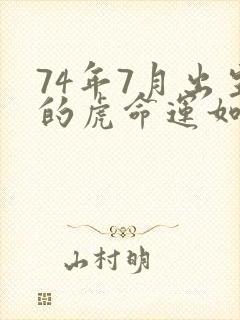 74年7月出生
的虎命运如
山村明